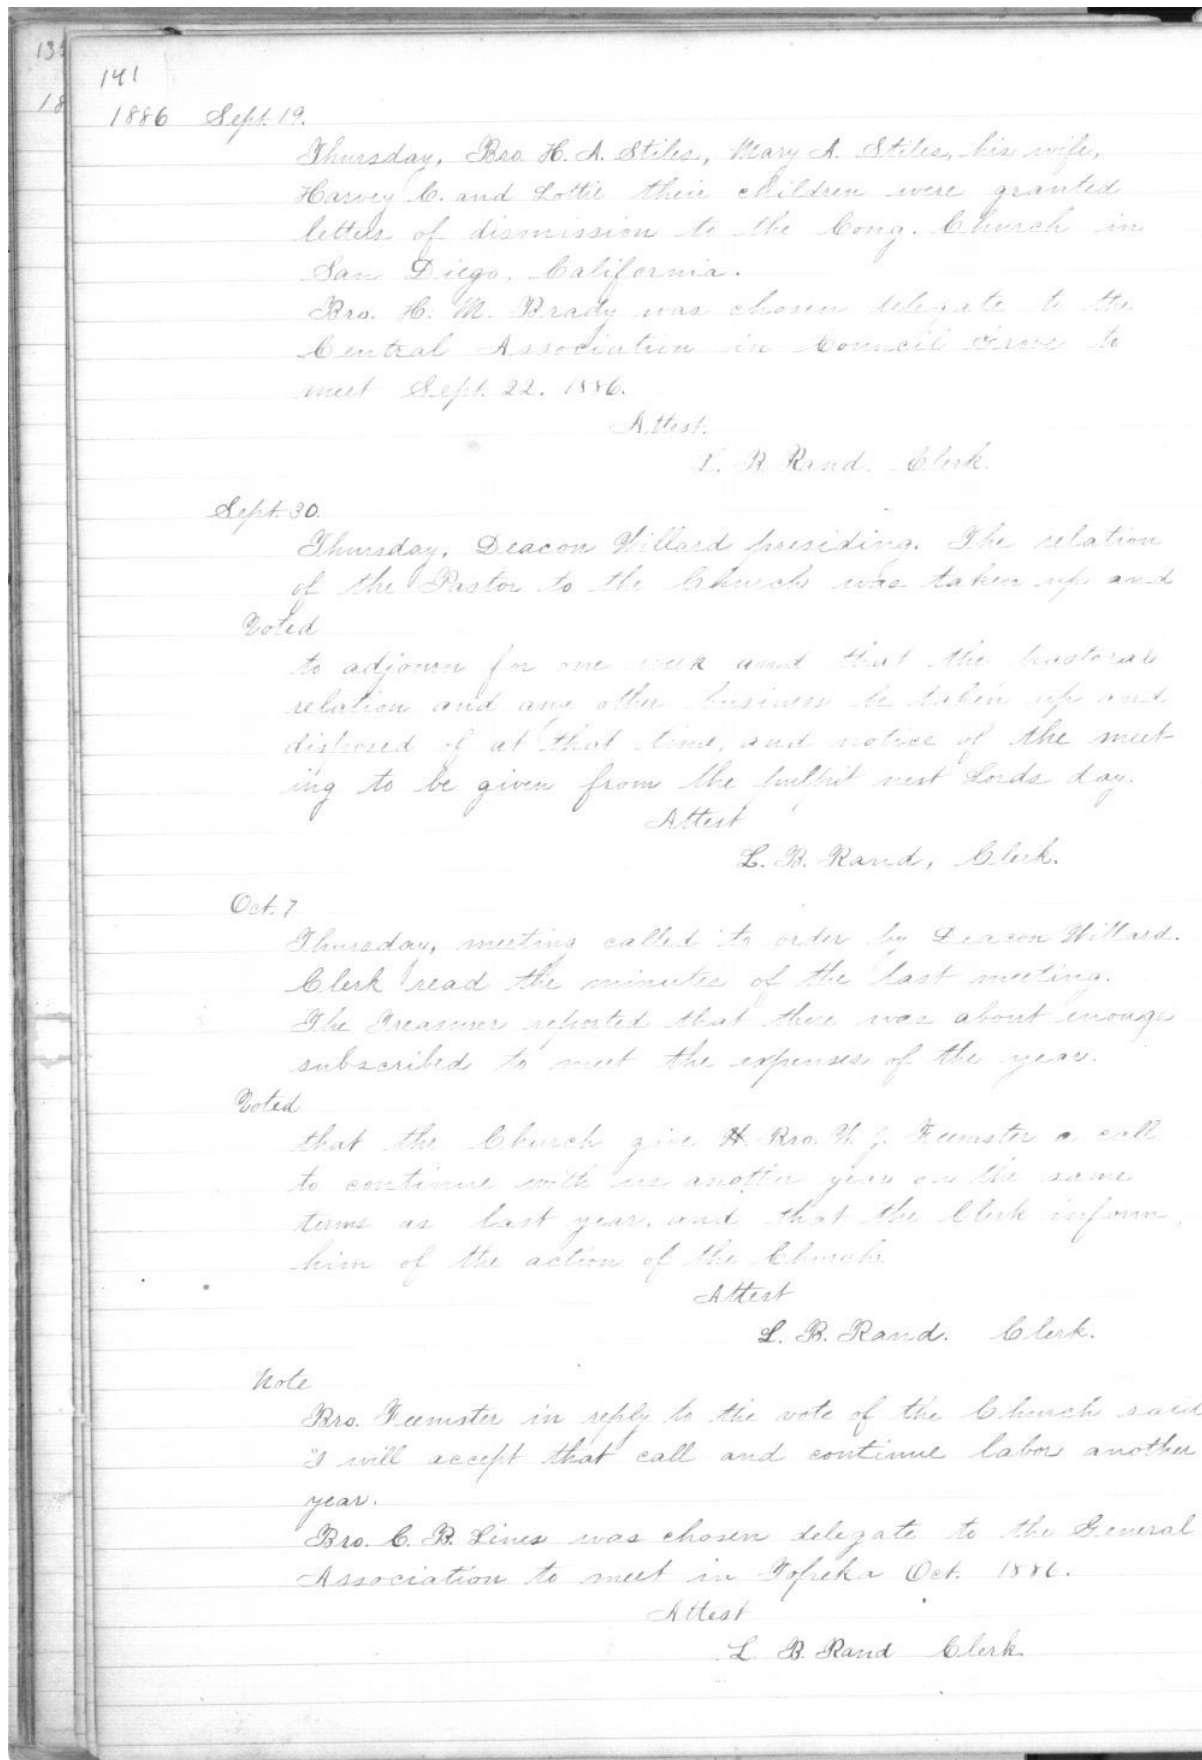 135
18
141
1886 Sept. 19.
Thursday, Bro. H. A. Stiles, Mary A. Stiles, his wife,
Harvey C. and Lottie their children were granted
letters of dismission to the Cong. Church in
San Diego, California.
Bro. H. M. Brady was chosen delegate to the
Central Association in Council Grove to
meet Sept. 22. 1886.
Attest.
L. B. Rand. Clerk.
Sept. 30.
Thursday, Deacon Willard presiding. The relation
of the Pastor to the Church was taken up and
Voted
to adjourn for one week and that the pastoral
relation and any other business be taken up and
disposed of at that time, and notice of the meet-
ing to be given from the pulpit next Lords day.
Attest
L. B. Rand, Clerk.
Oct. 7
Thursday, meeting called to order by Deacon Willard.
Clerk read the minutes of the last meeting.
The Treasurer reported that there was about enough
subscribed to meet the expenses of the year.
Voted
that the Church give Bro. W. J. Feemster a call
to continue with us another year on the same
terms as last year, and that the Clerk inform
him of the action of the Church.
Attest
L. B. Rand. Clerk.
Note
Bro. Feemster in reply to the vote of the Church said
"I will accept that call and continue labor another
year.
Bro. C. B. Lines was chosen delegate to the General
Association to meet in Topeka Oct. 1886.
Attest
L. B. Rand Clerk.